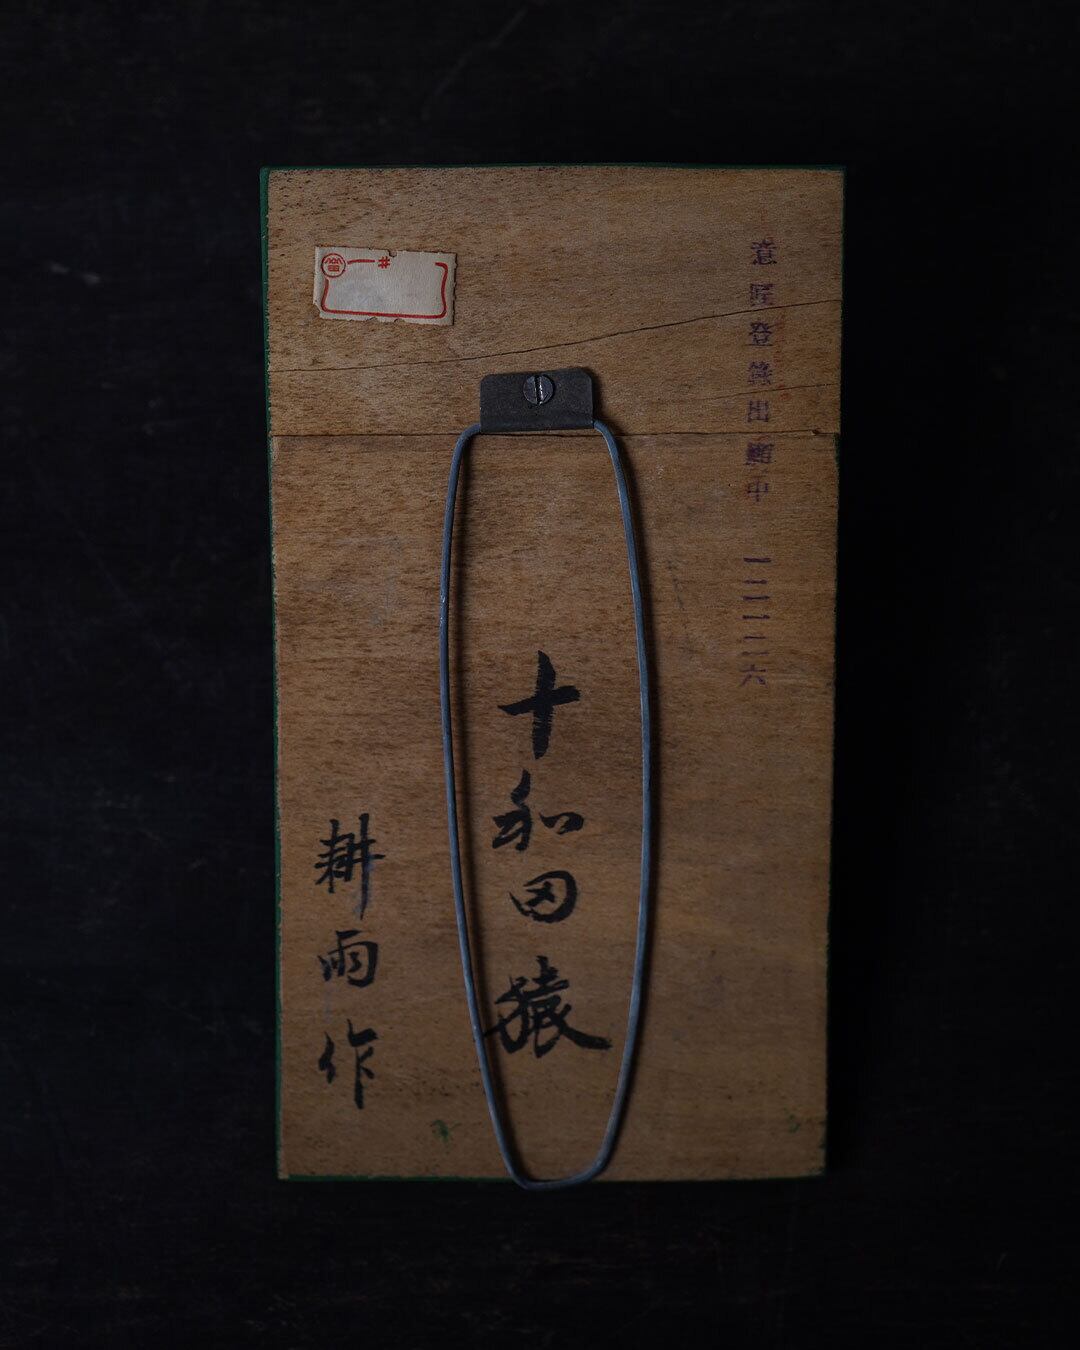 意匠登録出願中 一二一二六
十和田猿
耕雨作